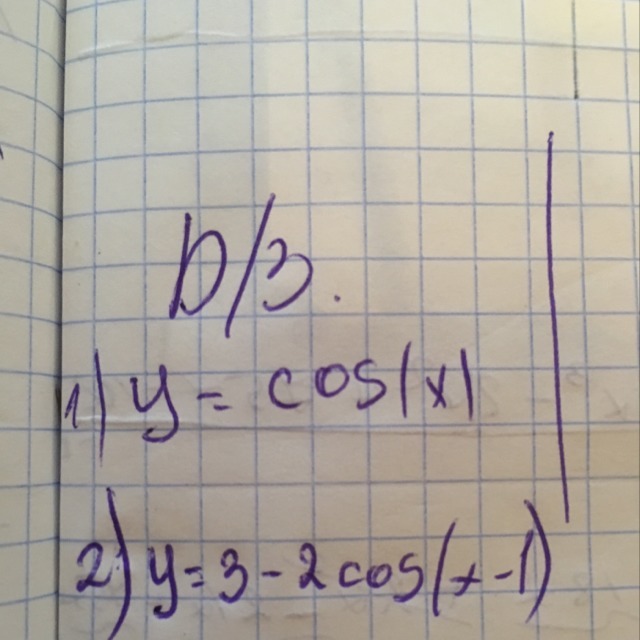 D/З.
1) y = cos|x|
2) y = 3 - 2cos(x-1)